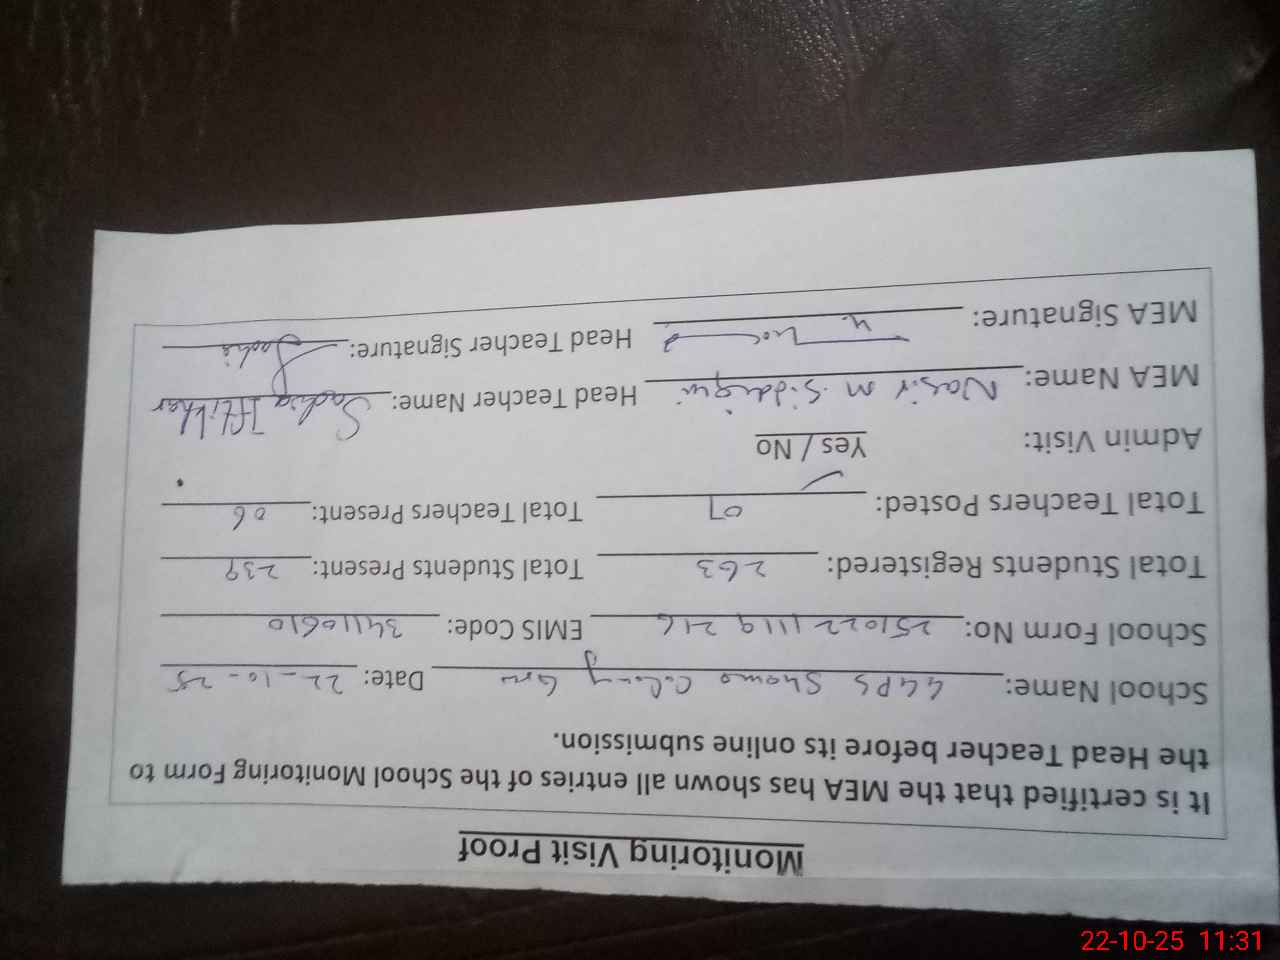 Monitoring Visit Proof
It is certified that the MEA has shown all entries of the School Monitoring Form to
the Head Teacher before its online submission.
School Name: GGPS Shama Colony Grw Date: 22-10-25
School Form No: 251022 1119 216 EMIS Code: 34110610
Total Students Registered: 263 Total Students Present: 239
Total Teachers Posted: 07 Total Teachers Present: 06
Admin Visit: Yes / No
MEA Name: Nasir M. Siddiqui Head Teacher Name: Sadia Iftikhar
MEA Signature: Head Teacher Signature: Sadia
22-10-25 11:31